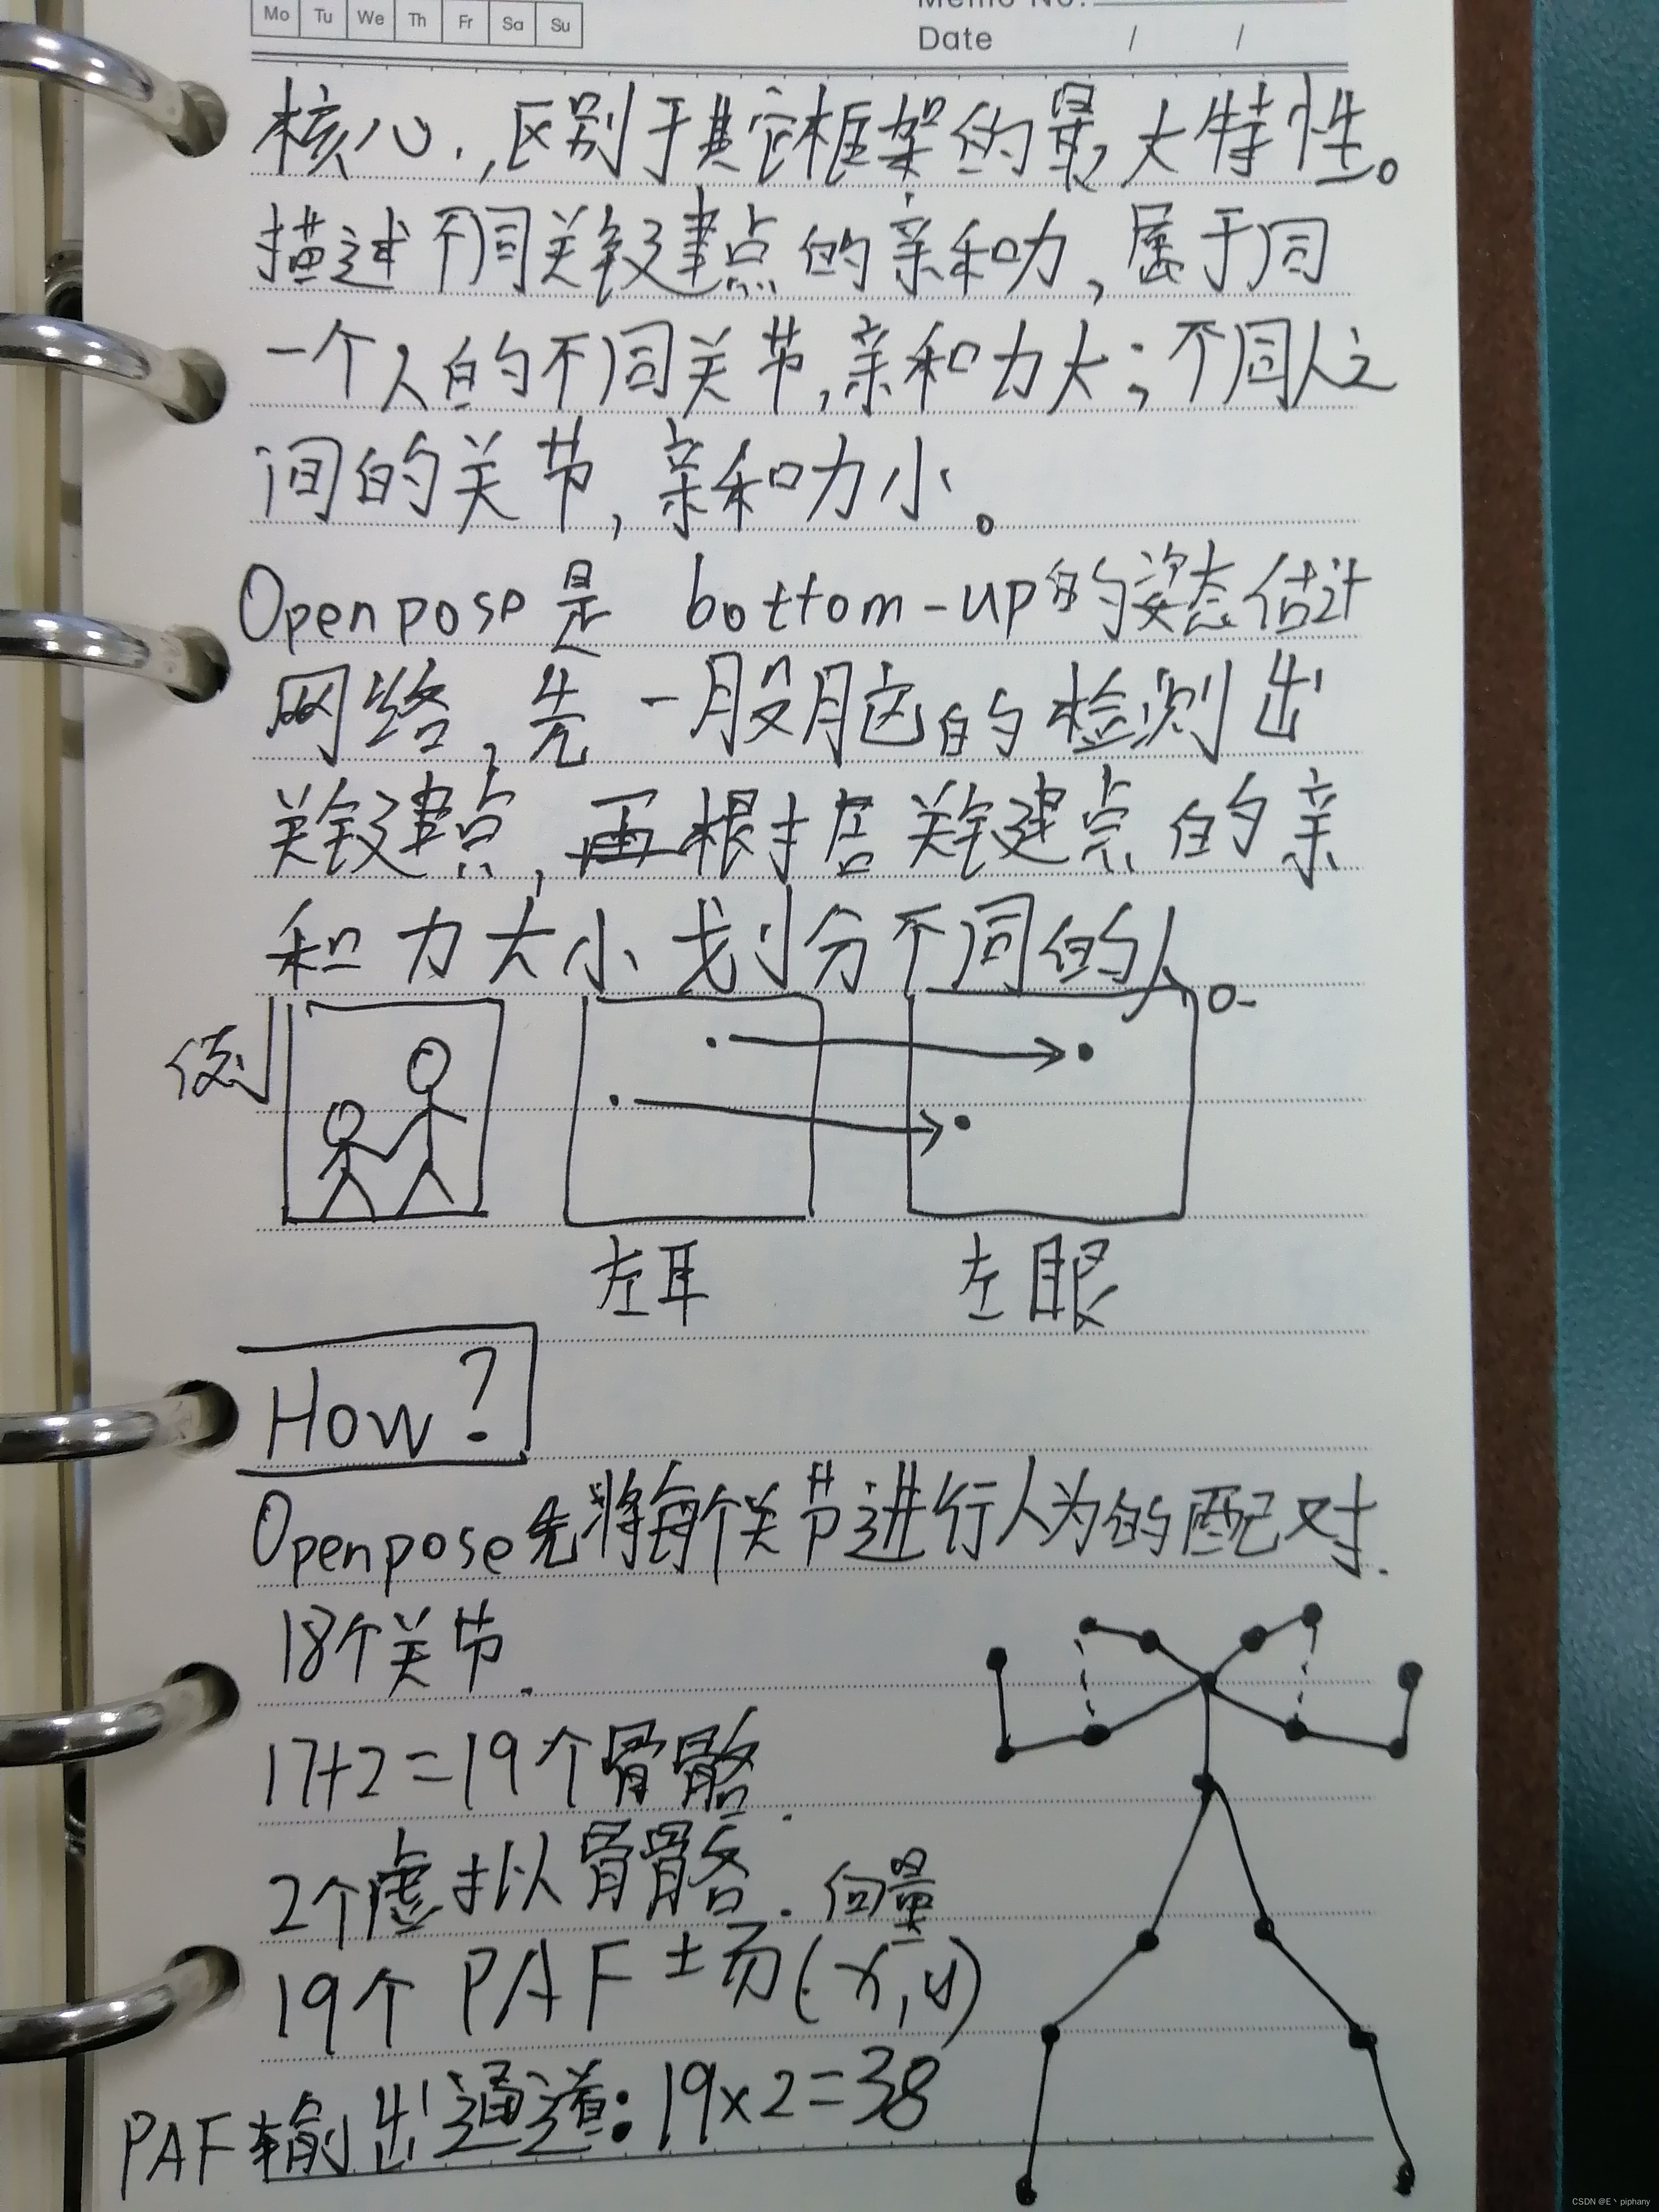 Mo Tu We Th Fr Sa Su
Memo No.
Date / /
核心.,区别于其它框架的最大特性。
描述不同关键点的亲和力,属于同
一个人的不同关节,亲和力大;不同人之
间的关节,亲和力小。
Openpose是 bottom-up的姿态估计
网络,先一股脑的检测出
关键点,再根据关键点的亲
和力大小划分不同的人。
例
左耳 左眼
How?
Openpose先将每个关节进行人为的配对.
18个关节.
17+2=19个骨骼.
2个虚拟骨骼. 向量
19个 PAF 场(x,y)
PAF输出通道:19×2=38
CSDN @E丶piphany